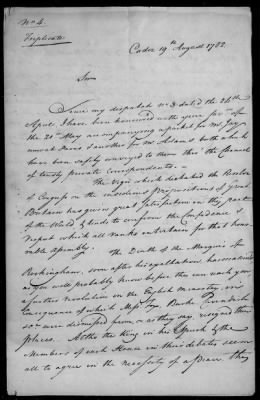 No 4.
Triplicate
Cadiz 19th August 1782.
Sir
Since my dispatch No 3 dated the 24th
April I have been honoured with yours of
the 20th May accompanying a packet for Mr Jay
Paris & another for Mr Adams both which
have been safely conveyed to them thro' the Channel
of trusty private correspondents.
The vigor which dictated the Resolve
of Congress on the insidious propositions of Great
Britain has given great satisfaction in this part
of the World & tends to confirm the Confidence &
respect which all ranks entertain for that honor
able Assembly.
The Death of the Marquis of
Rockingham, soon after his exaltation has occasioned
as you will probably know before this can reach you
a further revolution in the English Ministry, in
Consequence of which Messrs Fox, Burke Cavendish
&c. were dismissed from, or as they say, resigned their
places. As the King in his Speech & the
Members of each House in their debates, seem
all to agree in the necessity of a peace they